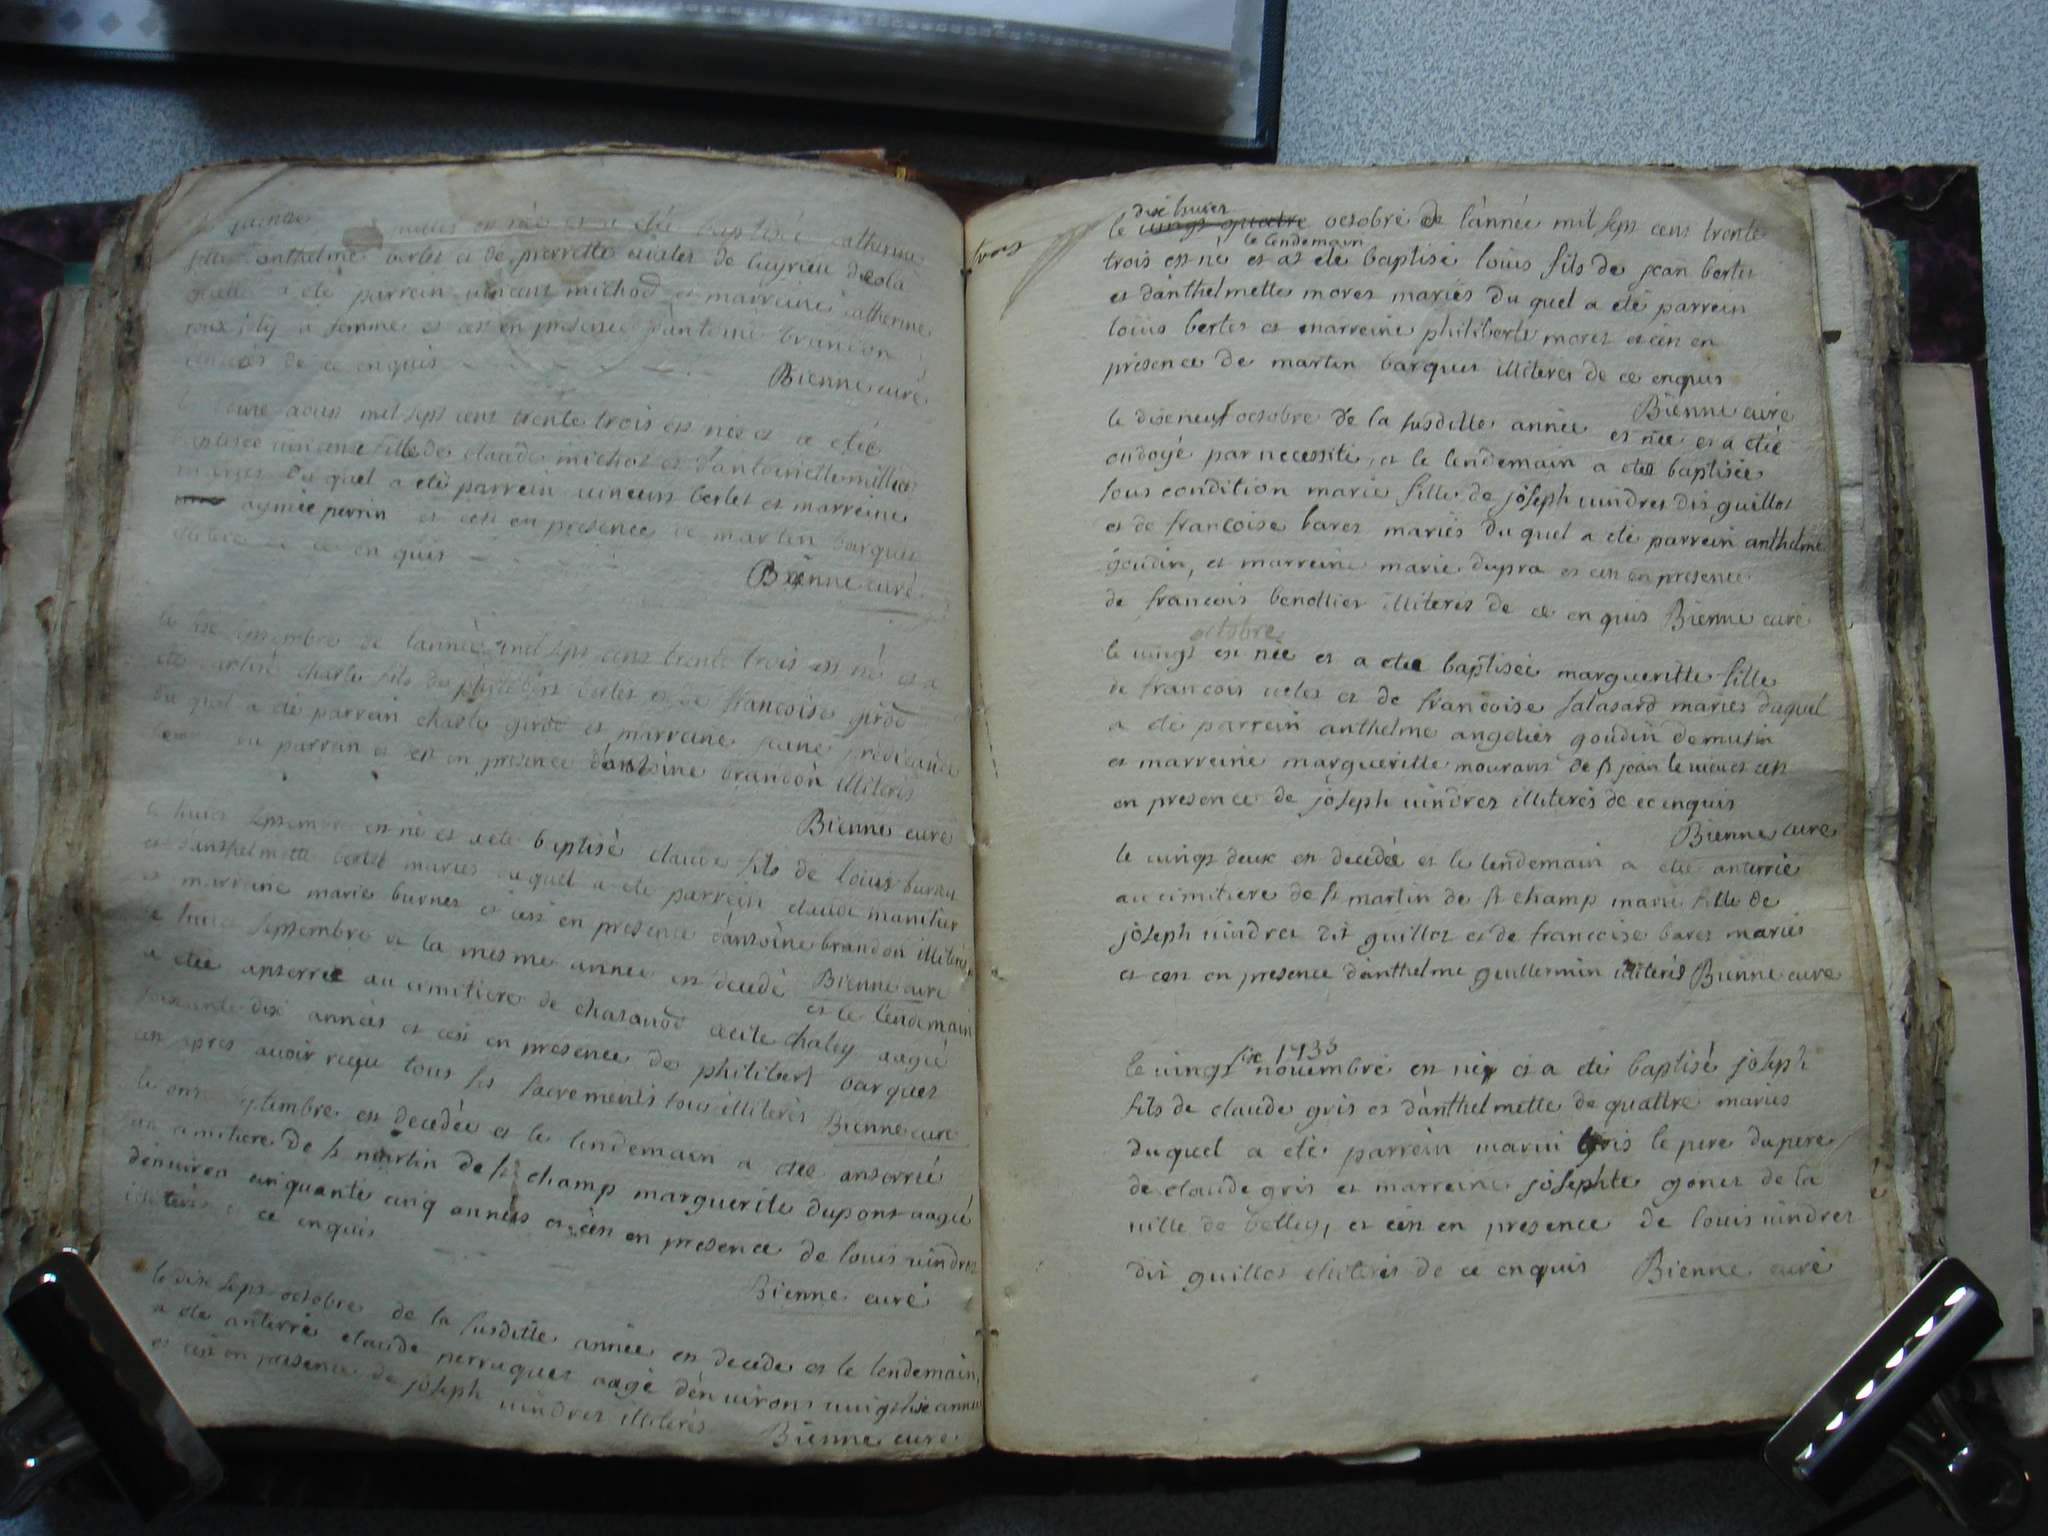 est née et a eté baptisée catherine
fille anthelme berlet et de pierrette
a eté parrein vincent michod et marreine catherine
femme et cest en presence d'antoine brandon
illiterés de ce enquis
Bienne curé
aoust mil sept cens trente trois est née et a etée
baptisée vincente fille de claude michot et d'antoinette millier
mariés du quel a eté parrein vincens berlet et marreine
aymée perrin et cest en presence de martin barquet
de ce en quis
Bienne curé
septembre de lannée mil sept cens trente trois est né et a
eté baptisé charle fils de philibert berlet et de francoise girod
du quel a eté parrein charle girod et marreine
du parrein et cest en presence d'antoine brandon illiterés
Bienne curé
le huict septembre est né et a eté baptisé claude fils de louis burnet
et d'anthelmette berlet mariés du quel a eté parrein claude
et marreine marie burnet et cest en presence d'antoine brandon illiterés
Bienne curé
le huict septembre de la mesme année est decedé et le lendemain
a etée anterrée au cimitiere de chasavod cecile chaley aagée
soixante dix années et cest en presence de philibert barquet
cest apres avoir reçu tous les sacrements tous illiterés Bienne curé
le onze septembre est decedée et le lendemain a etée anterrié
au cimitiere de st martin de st champ marguerite dupont aagée
denviron cinquante cinq années et cest en presence de louis vindret
illiterés de ce enquis
Bienne curé
le dixe sept octobre de la susditte année est decedé et le lendemain
a eté anterré claude perruquet aagé d'environs vingt sixe années
et cest en presence de joseph vindret illiterés
Bienne curé
trois
dixe huict
le vingt quatre octobre de lánnée mil sept cens trente
le lendemain
trois est né et at eté baptisé louis fils de jean berlet
et d'anthelmette moret mariés du quel a eté parrein
louis berlet et marreine philiberte moret et cest en
présence de martin barquet illiteres de ce enquis
Bienne curé
le dixe neuf octobre de la susditte année est née et a etée
ondoyé par necessité, et le lendemain a etée baptisée
sous condition marie fille de joseph vindret dit guillot
et de francoise baret mariés du quel a eté parrein anthelme
goudin, et marreine marie dupra et cest en presence
de francois benollier illiteres de ce enquis Bienne curé
octobre
le vingt est née et a etée baptisée margueritte fille
de francois velet et de francoise salasard mariés duquel
a eté parrein anthelme angelier goudin de musin
et marreine margueritte mourant de st jean le vieux et cest
en presence de joseph vindret illiterés de ce enquis
Bienne curé
le vingt deux est decedée et le lendemain a etée anterrié
au cimitiere de st martin de st champ marie fille de
joseph vindret dit guillot et de francoise baret mariés
et cest en presence d'anthelme guillermin illiterés Bienne curé
six 1733
le vingt novembre est né et a eté baptisé joseph
fils de claude gris et d'anthelmette de quattre mariés
duquel a eté parrein marin gris le pere du pere
de claude gris et marreine josephte gonet de la
ville de belley, et cest en presence de louis vindret
dit guillot illiterés de ce enquis Bienne curé